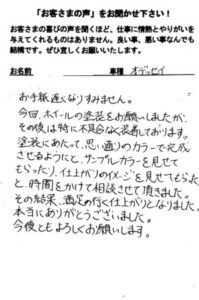 「お客さまの声」をお聞かせ下さい！
お客さまの喜びの声を聞くほど、仕事に情熱とやりがいを
与えてくれるものはありません。良い事、悪い事なんでも
結構です。ぜひ宜しくお願いいたします。
お名前　車種 オデッセイ
お手紙遅くなりすみません。
今回、ホイールの塗装をお願いしましたが、
その後は特に不具合なく装着しております。
塗装にあたって、思い通りのカラーで完成
させるようにと、サンプルカラーを見せて
もらったり、仕上がりのイメージを見せてもらった
と、時間をかけて相談させて頂きました。
その結果、満足の行く仕上がりとなりました。
本当にありがとうございました。
今後ともよろしくお願いします。